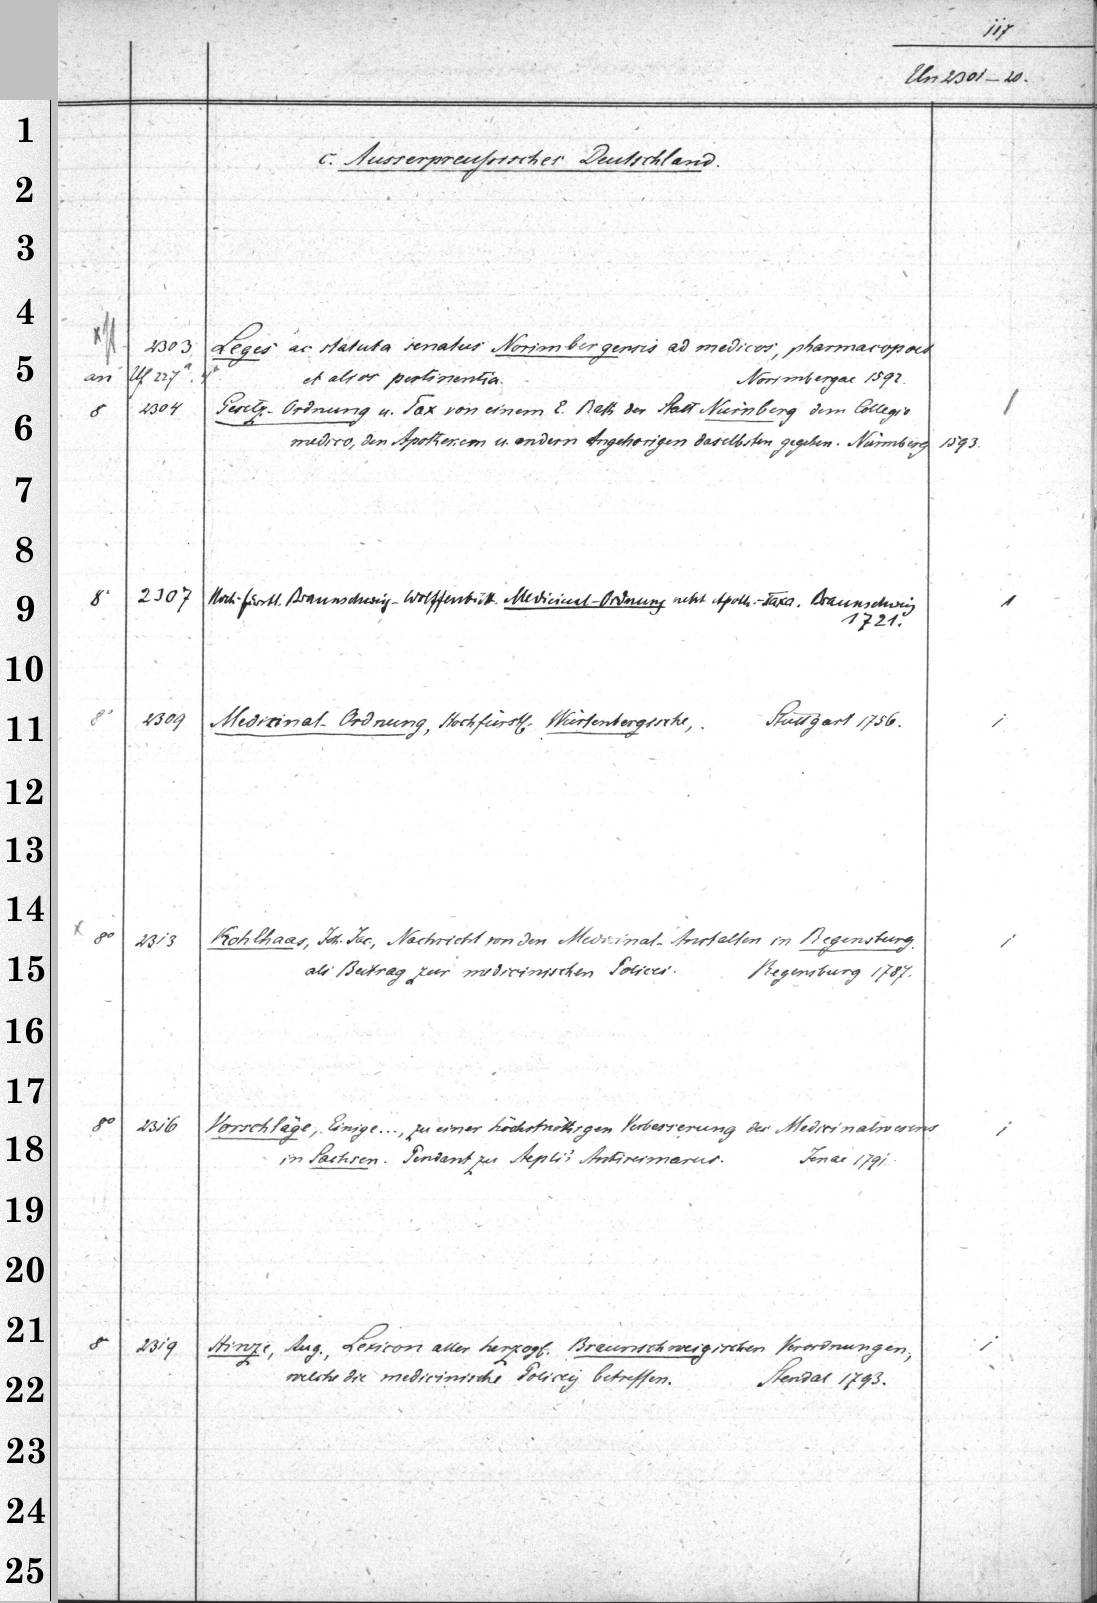 117
Un 2301–20.
1
c. Ausserpreussisches Deutschland.
2
3
4
2303 Leges ac statuta senatus Norimbergensis ad medicos, pharmacopoeos
5
an Uf 227ª. 4° et alios pertinentia. Norimbergae 1592.
8 2304 Gesetz-Ordnung u. Tax von einem E. Rath der Statt Nürnberg dem Collegio
6
medico, den Apothekern u. andern Angehörigen daselbsten gegeben. Nürmberg 1593.
7
8
9
8° 2307 Hoch-fürstl. Braunschweig-Wolffenbütt. Medicinal-Ordnung nebst Apoth.-Taxa. Braunschweig 1
1721.
10
11
8° 2309 Medizinal-Ordnung, Hochfürstl. Würtenbergische, . Stuttgart 1756. 1
12
13
14
x 8° 2313 Kohlhaas, Joh. Jac., Nachricht von den Medizinal-Anstalten in Regensburg. 1
15
als Beitrag zur medicinischen Policei. Regensburg 1787.
16
17
8° 2316 Vorschläge, Einige..., zu einer höchstnöthigen Verbesserung des Medicinalwesens 1
18
in Sachsen. Pendant zu Aepli's Antireimarus. Jenae 1791.
19
20
21
8° 2319 Hinze, Aug., Lexicon aller herzogl. Braunschweigischen Verordnungen, 1
22
welche die medicinische Policey betreffen. Stendal 1793.
23
24
25